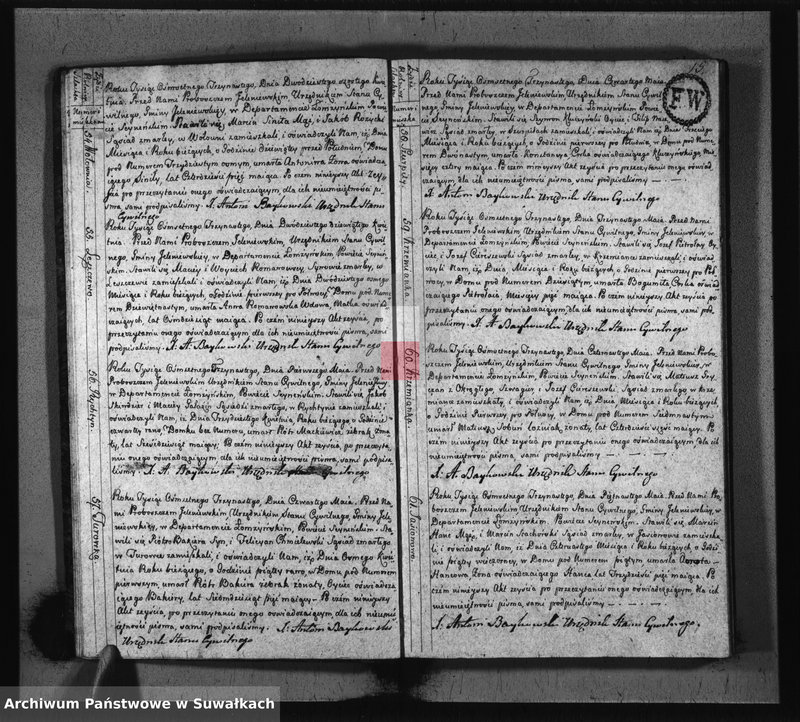 Roku Tysiąc Ośmsetnego Trzynastego, Dnia Dwudziestego
Przed Nami Proboszczem Jeleniewskim Urzędnikiem Stanu Cy
wilnego, Gminy Jeleniewskiey, w Departamencie Łomżyńskim Powie
cie Seyneńskim Stawili się Marcin Sinila Mąż, i Jakób
Sąsiad zmarłey, w Wołowni zamieszkali, i oświadczyli Nam, iż Dnia
Miesiąca i Roku bieżących, o Godzinie dziewiątey przed Południem w Domu
pod Numerem Trzydziestym osmym, umarła Antonina Żona oświadcza
iącego Sinily, lat Czterdzieści pięć maiąca. Po czem ninieyszy Akt Zey
ścia po przeczytaniu onego oświadczaiącym, dla ich nieumieiętności pi
sma, sami podpisaliśmy. X. Antoni Baykowski Urzędnik Stanu
Cywilnego
Roku Tysiąc Ośmsetnego Trzynastego, Dnia Dwudziestego dziewiątego Kwie
tnia. Przed Nami Proboszczem Jeleniewskim, Urzędnikiem Stanu Cywil
nego, Gminy Jeleniewskiey, w Departamencie Łomżyńskim Powiecie Seyneń
skim. Stawili się Maciey i Woyciech Romanowscy, Synowie zmarłey, w
Leszczewie zamieszkali, i oświadczyli Nam, iż Dnia Dwudziestego osmego
Miesiąca i Roku bieżących, o Godzinie pierwszey po Północy, w Domu pod Nume
rem Dziewiętnastym, umarła Anna Romanowska Wdowa, Matka oświad
czaiących, lat Ośmdziesiąt maiąca. Po czem ninieyszy Akt zeyścia, po
przeczytaniu onego oświadczaiącym dla ich nieumieiętności pisma, sami
podpisaliśmy. X. A. Baykowski Urzędnik Stanu Cywilnego
Roku Tysiąc Ośmsetnego Trzynastego, Dnia Pierwszego Maia. Przed Nami
Proboszczem Jeleniewskim Urzędnikiem Stanu Cywilnego, Gminy Jeleniewskiey
w Departamencie Łomżyńskim, Powiecie Seyneńskim. Stawili się Jakób
i Maciey Sąsiedzi zmarłego, w zamieszkali, i
oświadczyli Nam, iż Dnia Trzydziestego Kwietnia, Roku bieżącego o Godzinie
czwartey rano, w Domku bez Numeru, umarł Piotr Maćkiewicz żebrak żona
ty, lat maiący. Po czem ninieyszy Akt zeyścia, po przeczyta
niu onego oświadczaiącym, dla ich nieumieiętności pisma, sami podpisa
liśmy. X. A. Baykowski Urzędnik Stanu Cywilnego
Roku Tysiąc Ośmsetnego Trzynastego, Dnia Czwartego Maia. Przed Na
mi Proboszczem Jeleniewskim Urzędnikiem Stanu Cywilnego, Gminy Jele
niewskiey, w Departamencie Łomżyńskim, Powiecie Seyneńskim. Sta
wili się Piotr Bakiera Syn, i Felicyan Chmielewski Sąsiad zmarłego
w Turowce zamieszkali, i oświadczyli Nam, iż Dnia Osmego Kwie
tnia Roku bieżącego, o Godzinie piątey rano, w Domu pod Numerem
pierwszym, umarł Piotr Bakiera żebrak żonaty, Oyciec oświadcza
iącego Bakiery, lat Siedmdziesiąt pięć maiący. Po czem ninieyszy
Akt zeyścia, po przeczytaniu onego oświadczaiącym, dla ich nieumie
iętności pisma, sami podpisaliśmy. X. Antoni Baykowski
Urzędnik Stanu Cywilnego
54. Wołownia.
55. Leszczewo.
57. Turowka.
15
FW
Roku Tysiąc Ośmsetnego Trzynastego, Dnia Czwartego Maia
Przed Nami Proboszczem Jeleniewskim, Urzędnikiem Stanu Cywil
nego, Gminy Jeleniewskiey, w Departamencie Łomżyńskim, Powie
cie Seyneńskim. Stawili się Szymon Oyciec, i Filip
Sąsiad zmarłey, w Szurpiłach zamieszkali, i oświadczyli Nam, iż Dnia Trzeciego
Miesiąca i Roku bieżących, o Godzinie pierwszey po Południu, w Domu pod Nume
rem Dwunastym umarła Konstancya Córka oświadczaiącego
cztery maiąca. Po czem ninieyszy Akt zeyścia po przeczytaniu onego oświad
czaiącym, dla ich nieumieiętności pisma, sami podpisaliśmy
X. Antoni Baykowski Urzędnik Stanu Cywilnego
Roku Tysiąc Ośmsetnego Trzynastego, Dnia Trzynastego Maia. Przed Nami
Proboszczem Jeleniewskim, Urzędnikiem Stanu Cywilnego, Gminy Jeleniewskiey, w
Departamencie Łomżyńskim, Powiecie Seyneńskim. Stawili się Józef Oy
ciec, i Józef Sąsiad zmarłey, w Krzemiance zamieszkali, i oświad
czyli Nam, iż Dnia Miesiąca i Roku bieżących, o Godzinie pierwszey po Pół
nocy, w Domu pod Numerem Dziesiątym, umarła Bogumiła Córka oświad
czaiącego, Miesięcy pięć maiąca. Po czem ninieyszy Akt zeyścia po
przeczytaniu onego oświadczaiącym, dla ich nieumieiętności pisma, sami pod
pisaliśmy. X. A. Baykowski Urzędnik Stanu Cywilnego
Roku Tysiąc Ośmsetnego Trzynastego, Dnia Czternastego Maia. Przed Nami Probo
szczem Jeleniewskim, Urzędnikiem Stanu Cywilnego, Gminy Jeleniewskiey, w
Departamencie Łomżyńskim, Powiecie Seyneńskim. Stawili się Mateusz
z Szwagier, i Józef Sąsiad zmarłego w Krze
miance zamieszkali, i oświadczyli Nam, iż Dnia Miesiąca i Roku bieżących,
o Godzinie Pierwszey po Północy, w Domu pod Numerem Siedmnastym
umarł Mateusz żonaty, lat Czterdzieści sześć maiący. Po
czem ninieyszy Akt zeyścia po przeczytaniu onego oświadczaiącym, dla ich
nieumieiętności pisma, sami podpisaliśmy
X. A. Baykowski Urzędnik Stanu Cywilnego
Roku Tysiąc Ośmsetnego Trzynastego, Dnia Piętnastego Maia. Przed Nami Pro
boszczem Jeleniewskim Urzędnikiem Stanu Cywilnego, Gminy Jeleniewskiey, w
Departamencie Łomżyńskim, Powiecie Seyneńskim. Stawili się Marcin
Hanc Mąż, i Marcin Sąsiad zmarłey, w Jasionowie zamieszka
li, i oświadczyli Nam, iż Dnia Czternastego Miesiąca i Roku bieżących o Godzi
nie piątey wieczorney, w Domu pod Numerem Piątym umarła Dorota
Hancowa, Żona oświadczaiącego Hanca, lat Trzydzieści pięć maiąca. Po
czem ninieyszy Akt zeyścia po przeczytaniu onego oświadczaiącym dla ich
nieumieiętności pisma, sami podpisaliśmy
X. Antoni Baykowski Urzędnik Stanu Cywilnego.
58. Szurpiły.
59. Krzemianka.
60. Krzemianka.
61. Jasionowo.
Archiwum Państwowe w Suwałkach